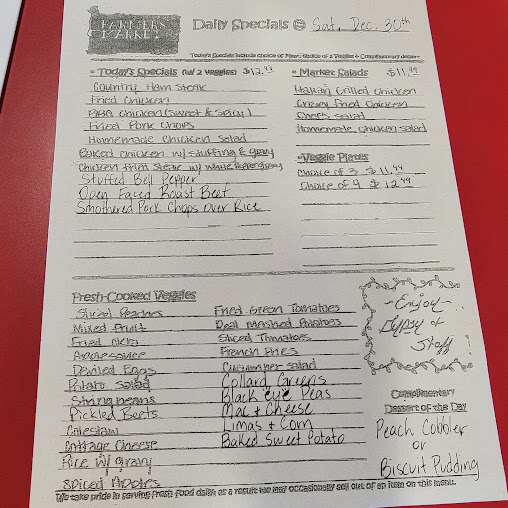 FARMERS MARKET
Daily Specials @ Sat, Dec. 30th
Today's Specials include choice of Meat, Choice of 2 Veggies & Complimentary dessert
- Today's Specials (w/ 2 veggies) $12.
Country Ham Steak
Fried Chicken
BBQ Chicken (Sweet & Spicy)
Fried Pork Chops
Homemade Chicken Salad
Baked Chicken w/ Stuffing & gravy
Chicken Fried Steak w/ White Pepper gravy
Stuffed Bell Pepper
Open Faced Roast Beef
Smothered Pork Chops over Rice
- Market Salads $11.49
Italian Grilled Chicken
Crispy Fried Chicken
Chefs Salad
Homemade Chicken Salad
-Veggie Plates
Choice of 3 $11.49
Choice of 4 $12.49
Fresh-Cooked Veggies
Sliced Peaches
Mixed Fruit
Fried Okra
Applesauce
Deviled Eggs
Potato Salad
String beans
Pickled Beets
Coleslaw
Cottage Cheese
Rice w/ gravy
Spiced Apples
Fried Green Tomatoes
Real Mashed Potatoes
Sliced Tomatoes
French Fries
Cucumber Salad
Collard Greens
Black eye Peas
Mac + Cheese
Limas + Corn
Baked Sweet Potato
-Enjoy-
Gypsy &
Staff!
Complimentary
Dessert of the Day
Peach Cobbler
or
Biscuit Pudding
We take pride in serving fresh food daily, as a result we may occasionally sell out of an item on this menu.